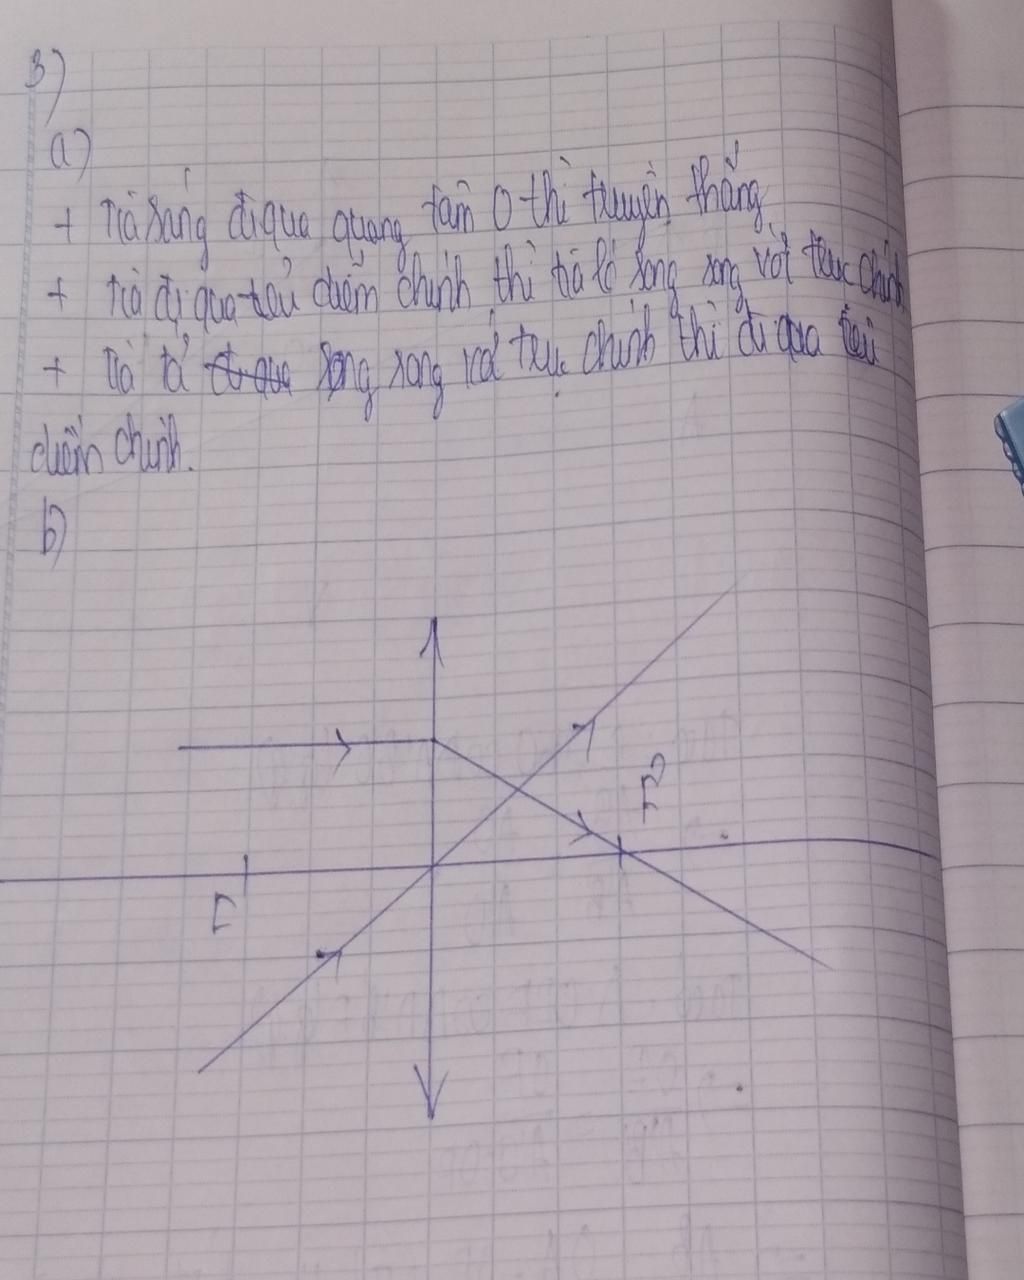 3)
a)
+ Tia sáng đi qua quang tâm O thì truyền thẳng
+ Tia đi qua tiêu điểm chính thì tia ló song song với trục chính
+ Tia tới đi qua song song với trục chính thì đi qua tiêu
điểm chính.
b)
F'
F